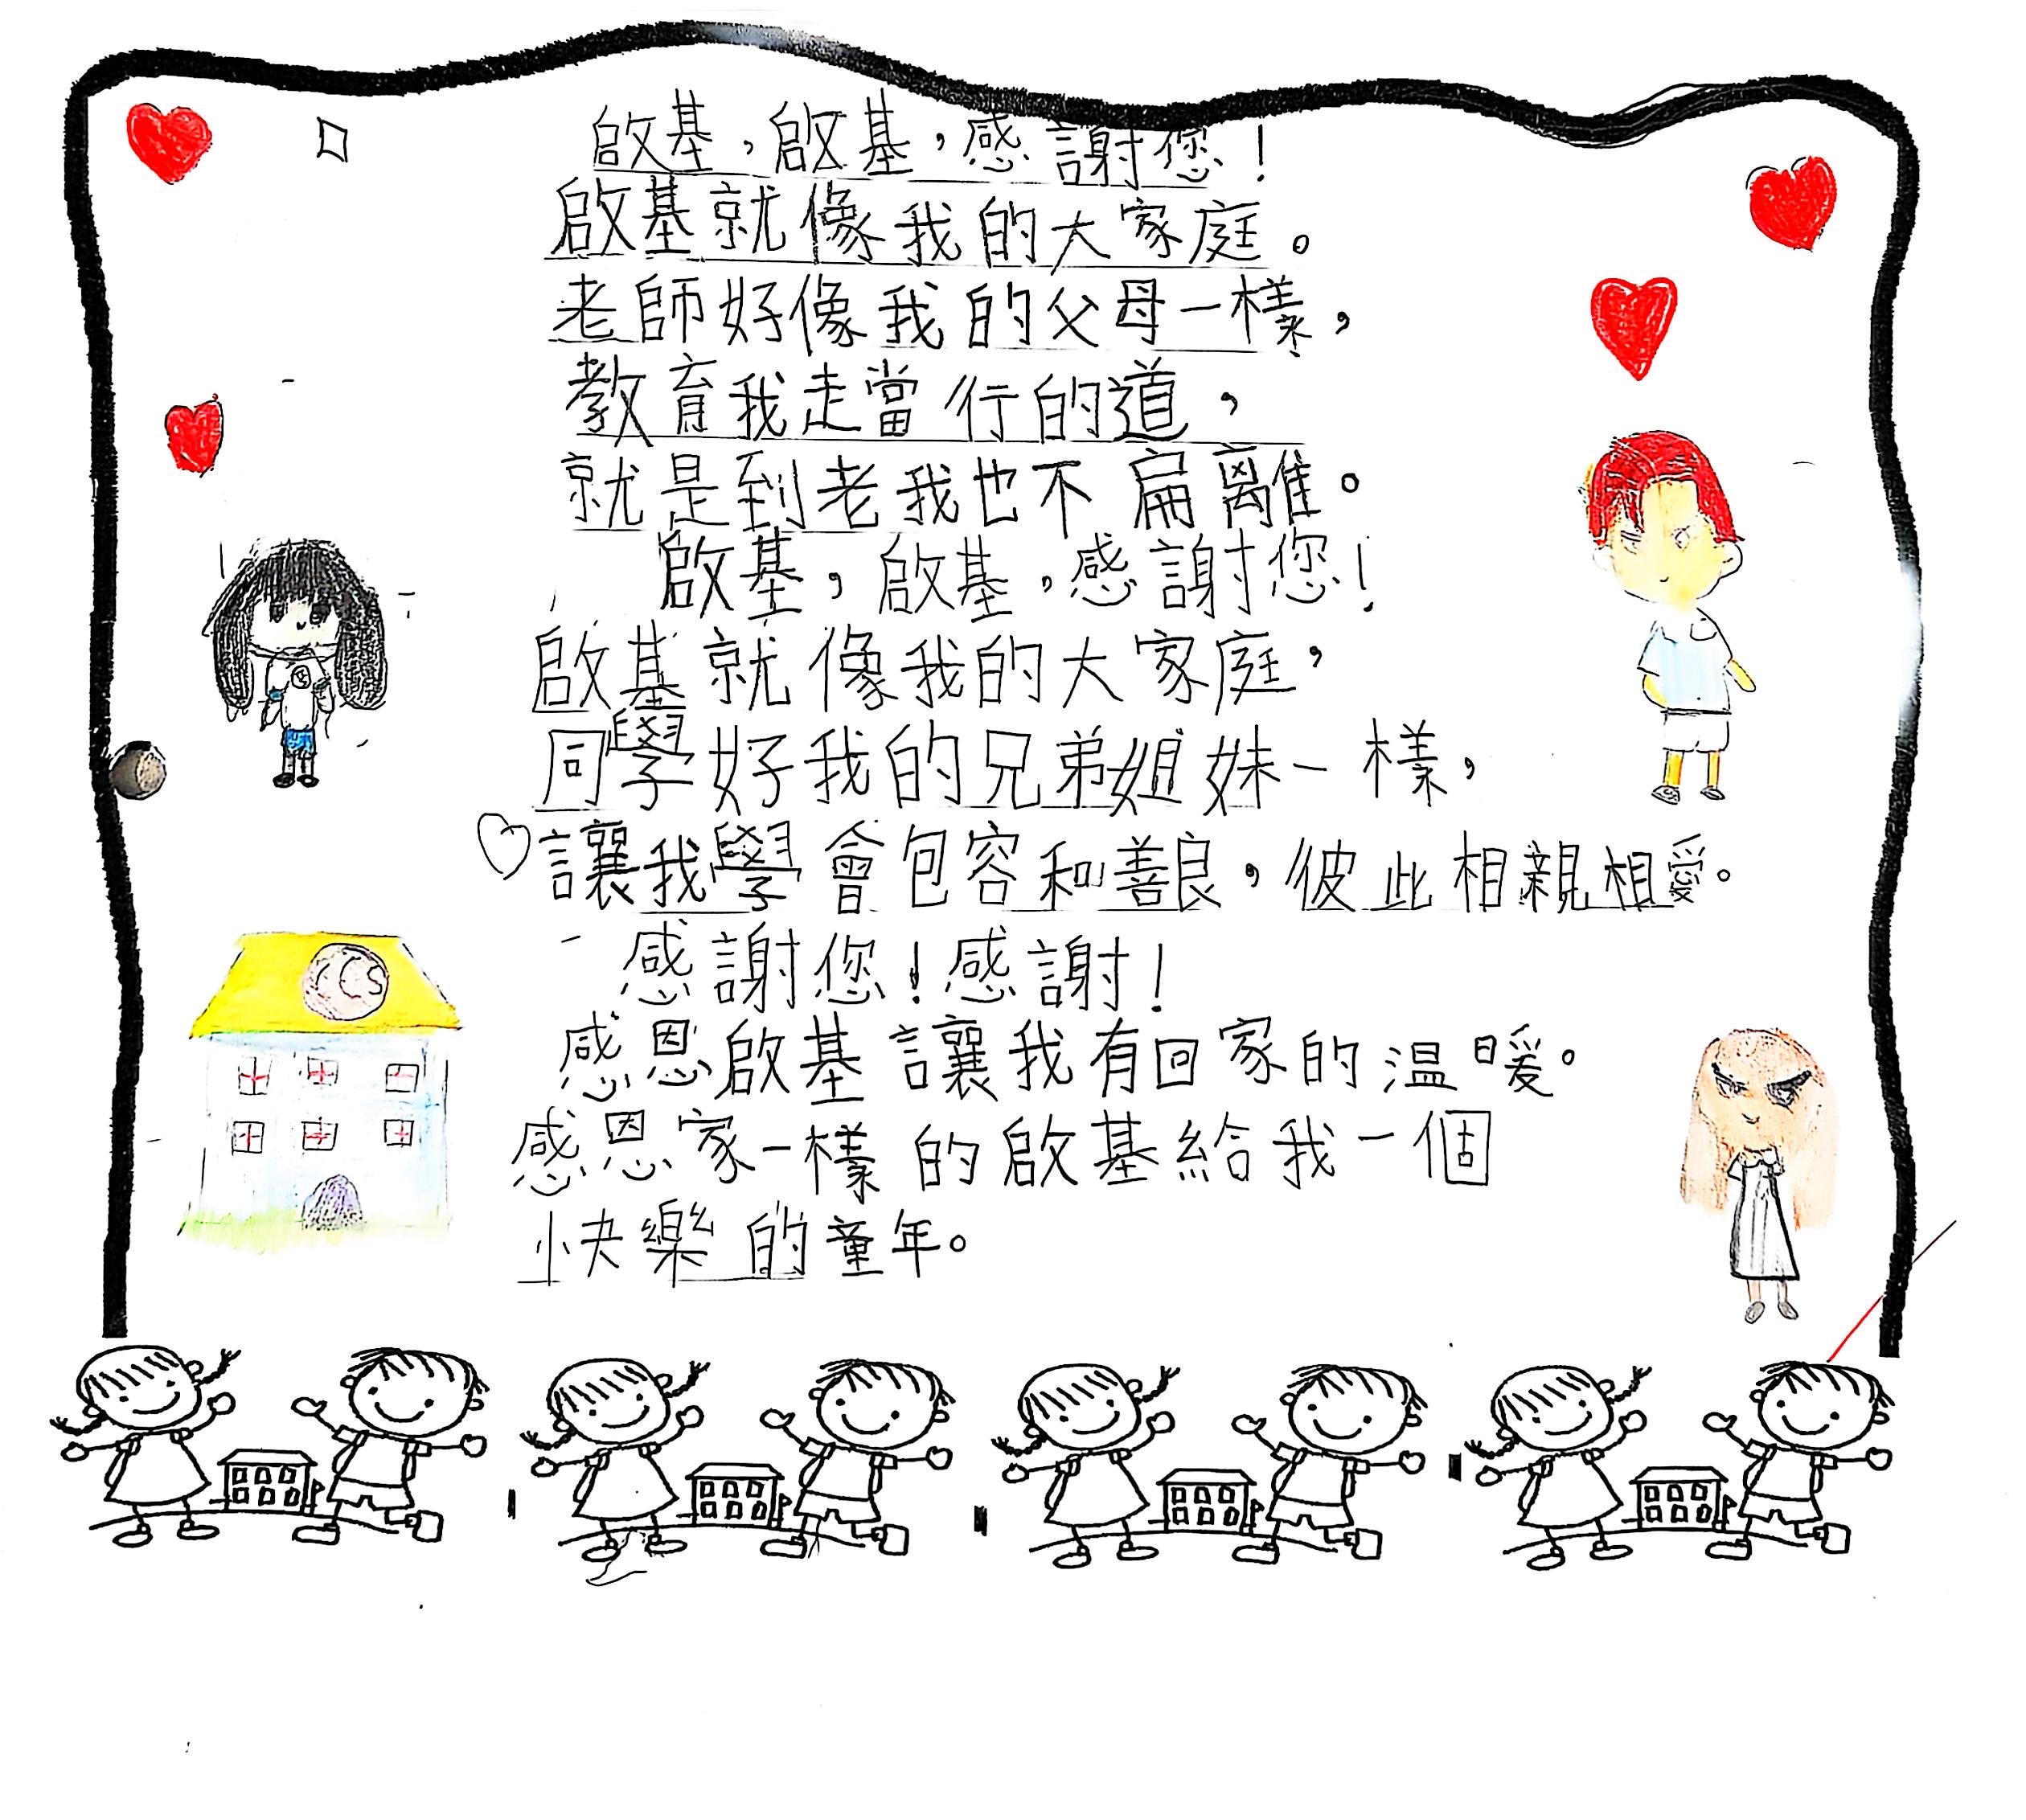 啟基，啟基，感謝您！
啟基就像我的大家庭。
老師好像我的父母一樣，
教育我走當行的道，
就是到老我也不扁離。
啟基，啟基，感謝您！
啟基就像我的大家庭，
同學好我的兄弟姐妹一樣，
讓我學會包容和善良，彼此相親相愛。
感謝您！感謝！
感恩啟基讓我有回家的溫暖。
感恩家一樣的啟基給我一個
快樂的童年。
CCS